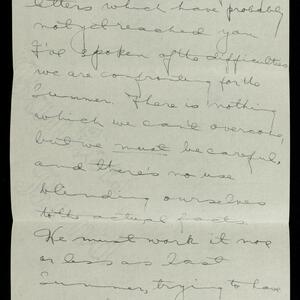 letters which have probably
not yet reached you
I've spoken of the difficulties
we are confronting for the
Summer. There is nothing
which we can't overcome,
but we must be careful,
and there's no use
blinding ourselves
to the actual facts.
We must work it
or less as last
Summer, trying to have